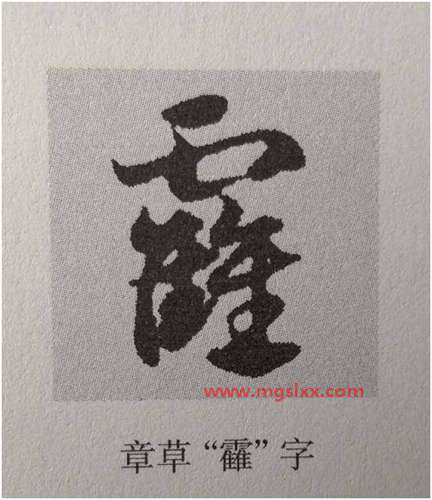 靃
www.mgslxx.com
章草“靃”字